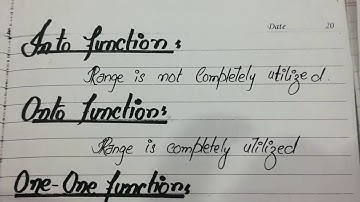 Date 20
Into function:
Range is not completely utilized.
Onto function:
Range is completely utilized
One-One function: